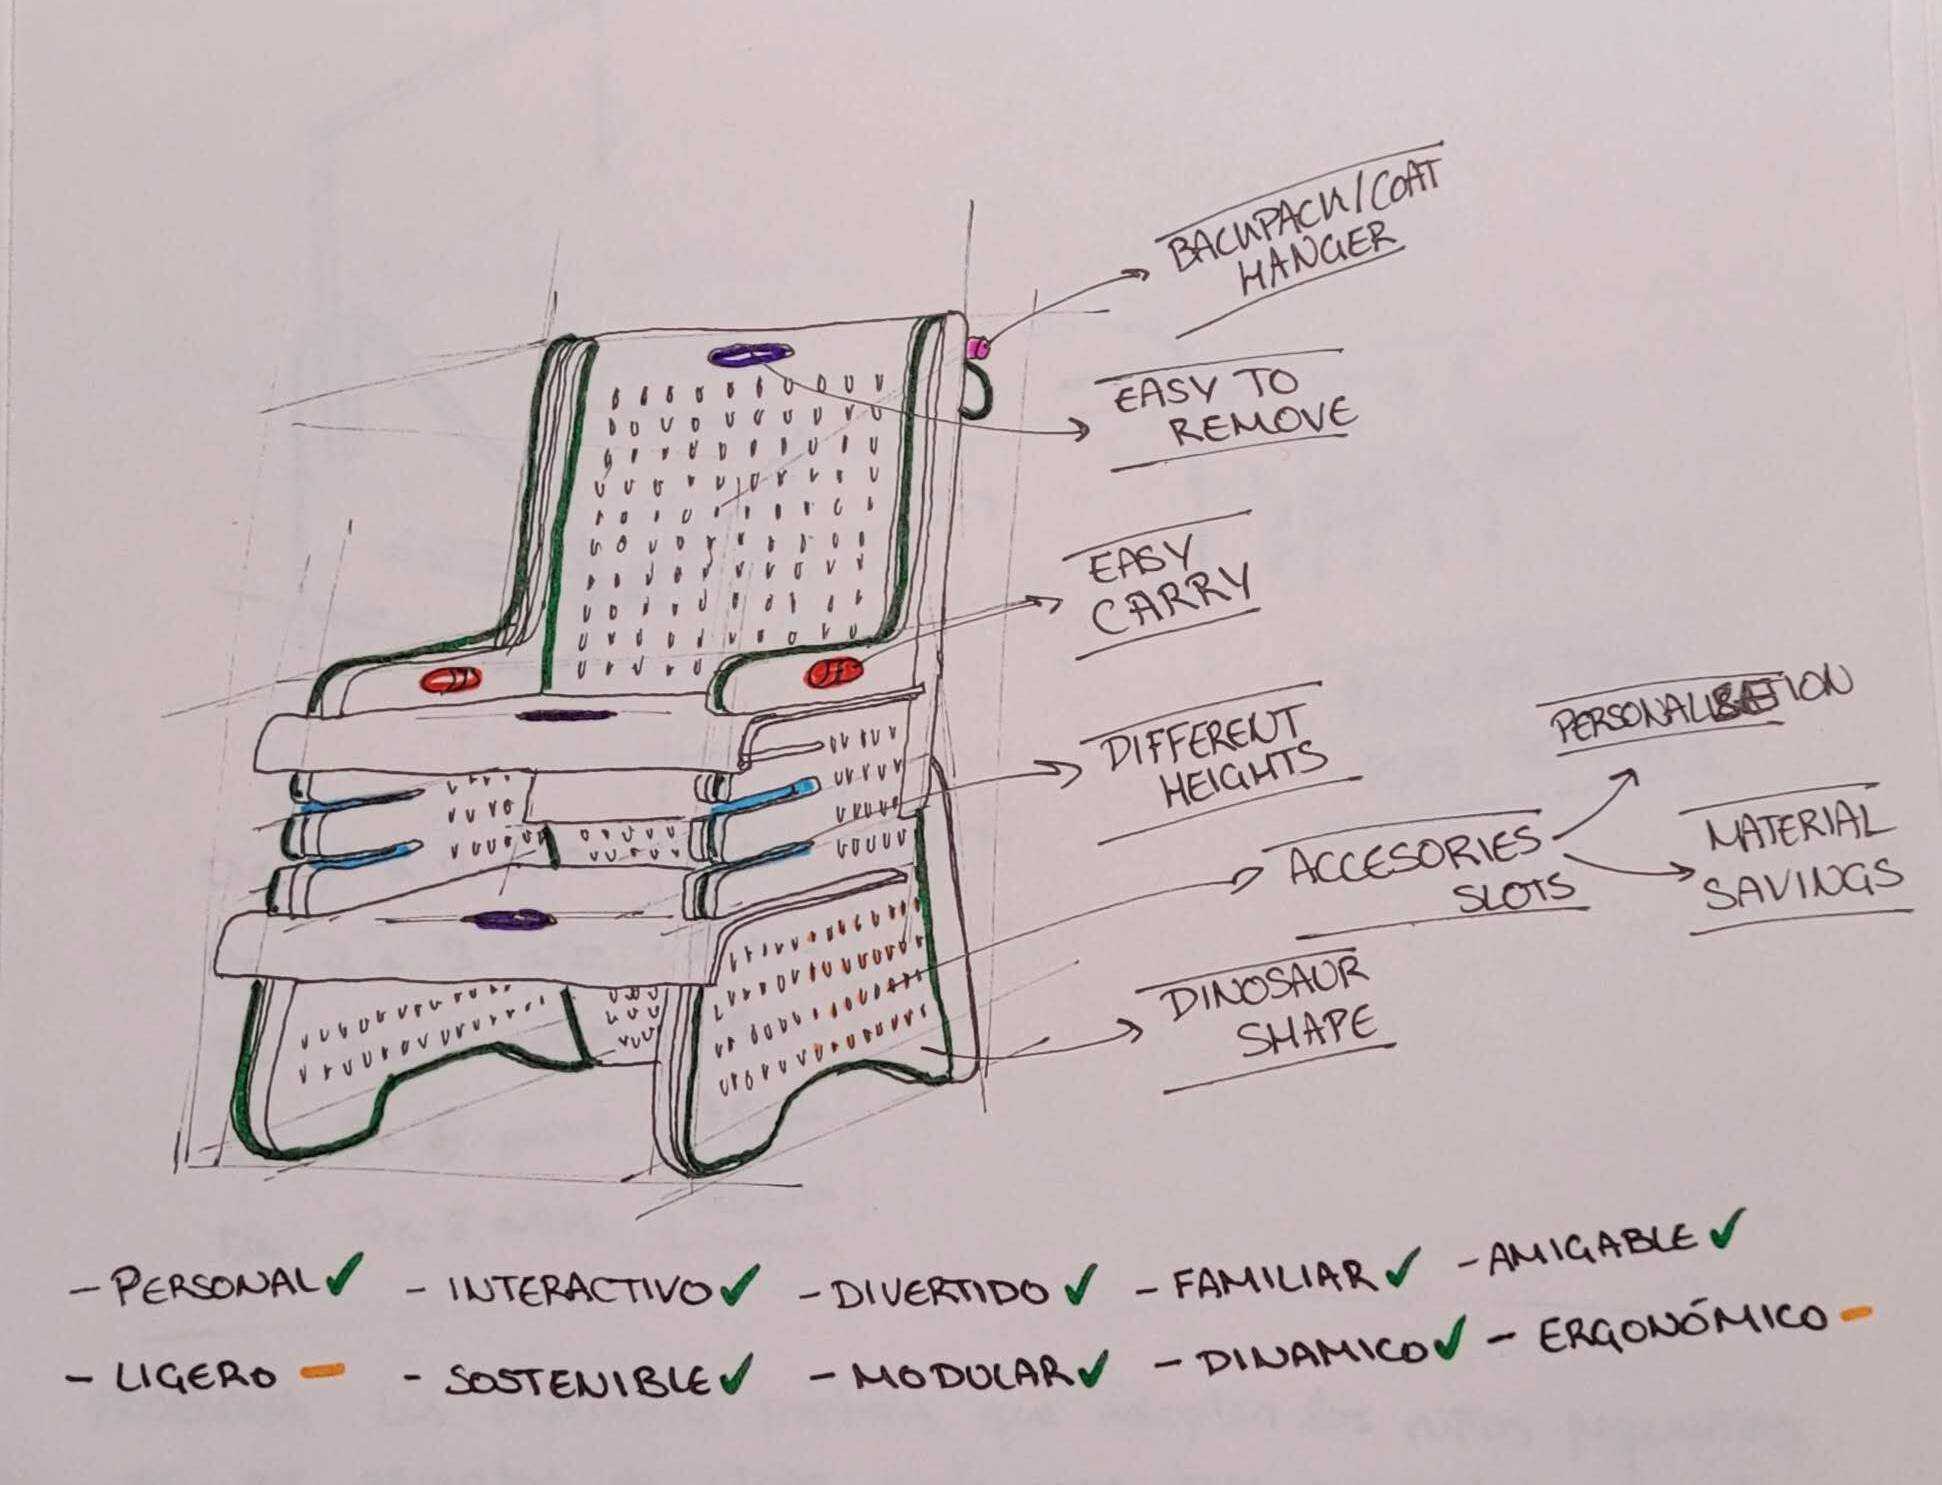 BACKPACK/COAT
HANGER
EASY TO
REMOVE
EASY
CARRY
DIFFERENT
HEIGHTS
PERSONALISATION
ACCESORIES
SLOTS
MATERIAL
SAVINGS
DINOSAUR
SHAPE
- PERSONAL ✓ - INTERACTIVO ✓ - DIVERTIDO ✓ - FAMILIAR ✓ - AMIGABLE ✓
- LIGERO - - SOSTENIBLE ✓ - MODULAR ✓ - DINAMICO ✓ - ERGONÓMICO -